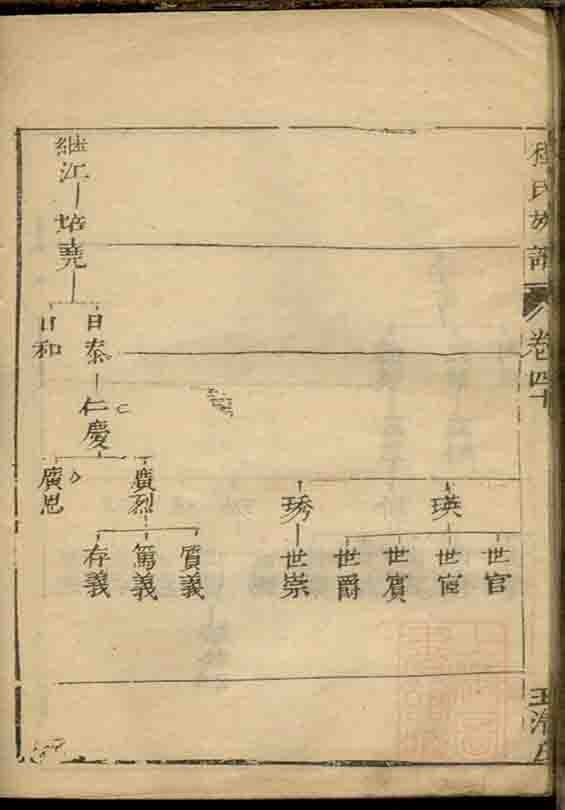 程氏族譜
卷四十
瑛
世官
世宦
世賓
世爵
琇
世崇
継江
培堯
日泰
日和
仁慶
廣烈
廣恩
質義
篤義
存義